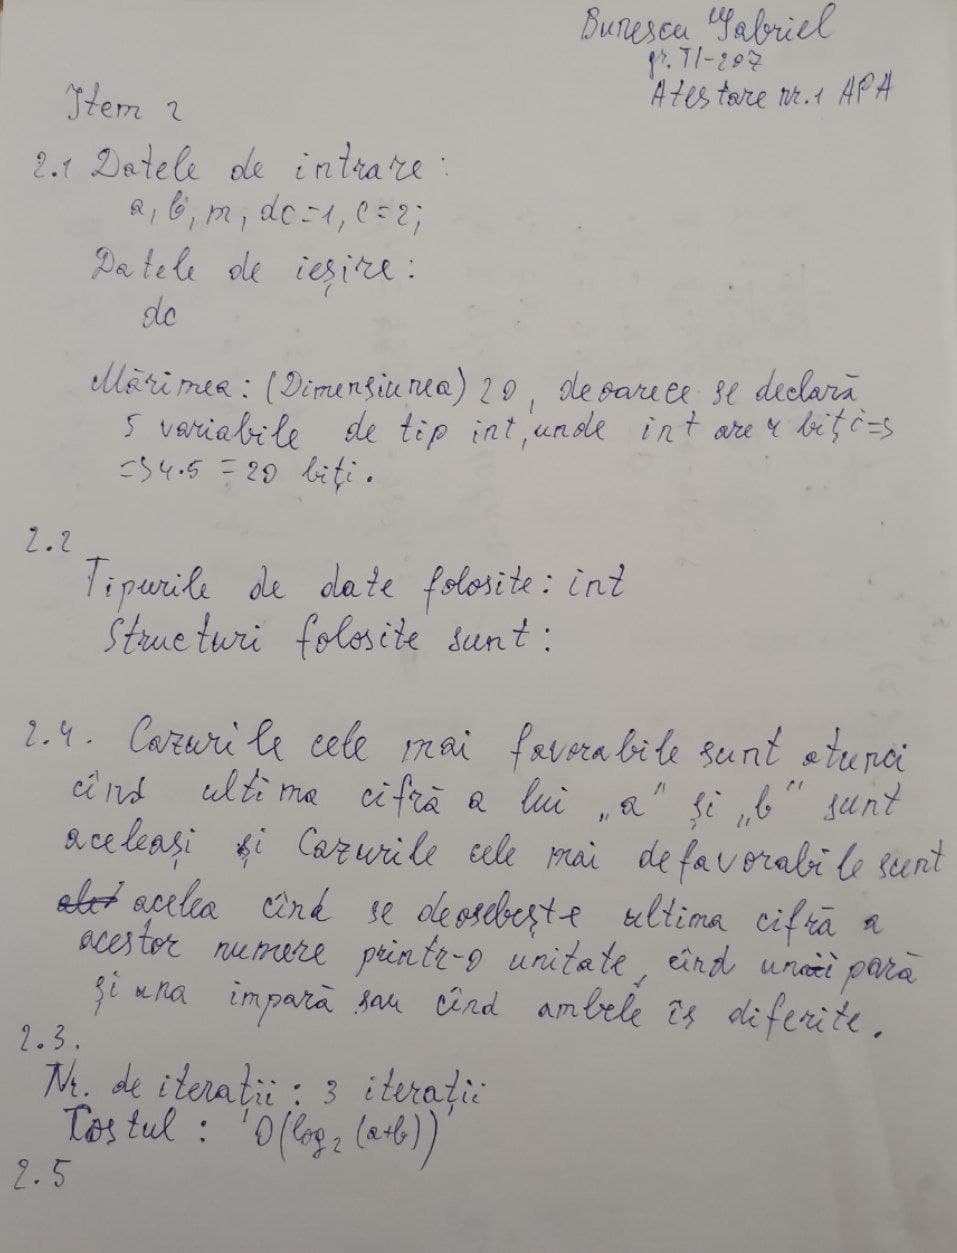 Bunescu Gabriel
gr. TI-207
Atestare nr.1 APA
Item 2
2.1 Datele de intrare:
a, b, m, dc=1, c=2;
Datele de ieșire:
dc
Mărimea: (Dimensiunea) 20, deoarece se declară
5 variabile de tip int, unde int are 4 biți =>
=> 4·5 = 20 biți.
2.2
Tipurile de date folosite: int
Structuri folosite sunt:
2.4. Cazurile cele mai favorabile sunt atunci
cînd ultima cifră a lui „a" și „b" sunt
aceleași și Cazurile cele mai defavorabile sunt
acelea cînd se deosebește ultima cifră a
acestor numere printr-o unitate, cînd una pară
și una impară sau cînd ambele îs diferite.
2.3.
Nr. de iterații: 3 iterații
Costul: O(log₂ (a+b))
2.5